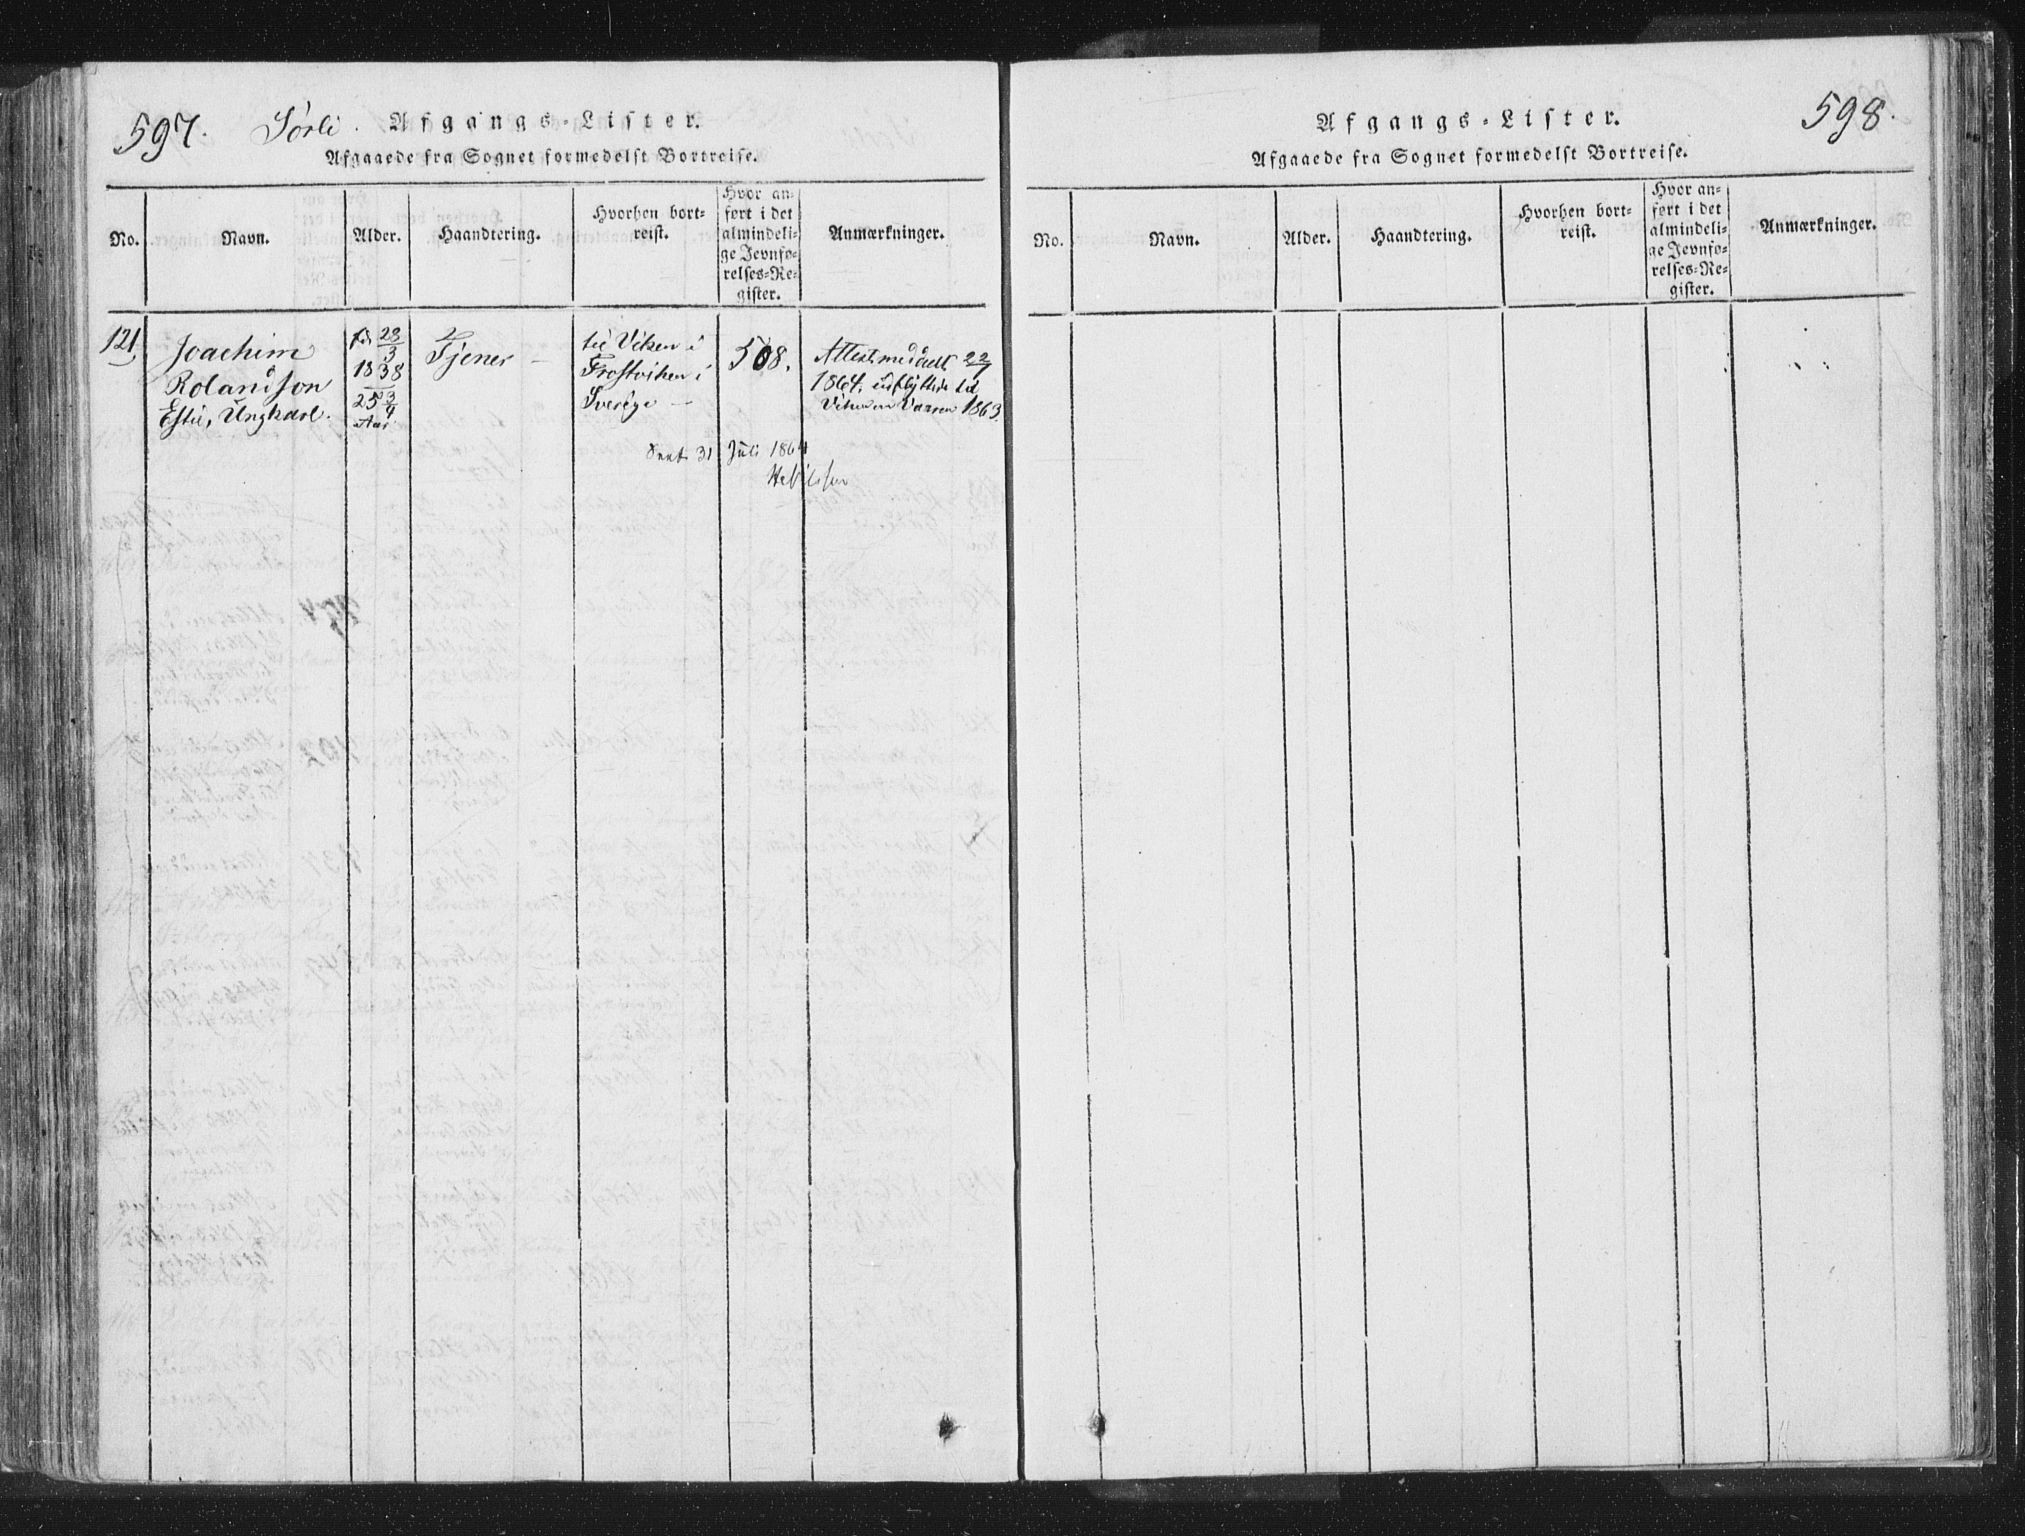 597. Sørli. Afgangs-Lister.
Afgaaede fra Sognet formedelst Bortreise.
No. Navn. Alder. Haandtering. Hvorhen bort-
reist. Hvor an-
ført i det
almindeli-
ge Jevnfø-
relses-Re-
gister. Anmærkninger.
121,
Joachim
Rolandson
Estil, Ungkarl.
23/3
1838
25 3/4
Aar
Tjener —
til Viken i
Frostviken i
Sverige —
508.
Attest meddelt 22/7
1864, udflyttede til
Viken om Vaaren 1863.
31 Juli 1864
598.
Afgangs-Lister.
Afgaaede fra Sognet formedelst Bortreise.
No. Navn. Alder. Haandtering. Hvorhen bort-
reist. Hvor an-
ført i det
almindeli-
ge Jevnfø-
relses-Re-
gister. Anmærkninger.